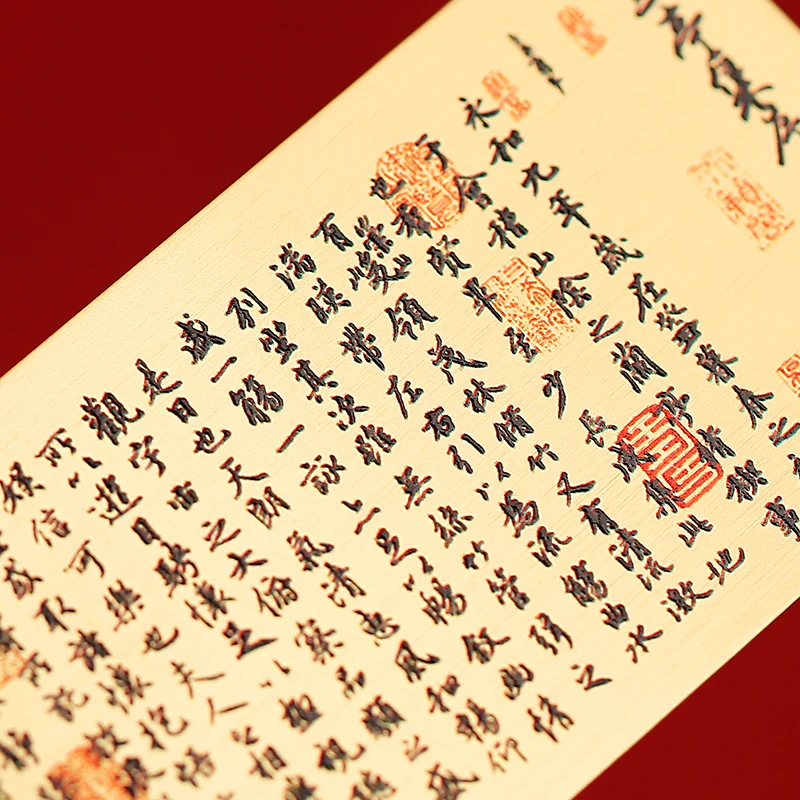 亭集序
永和九年歲在癸丑暮春之
于會稽山陰之蘭亭脩稧事
也羣賢畢至少長咸集此地
有崇山峻領茂林脩竹又有清流激
湍暎帶左右引以為流觴曲水
列坐其次雖無絲竹管弦之
盛一觴一詠上足以暢敘幽情
是日也天朗氣清惠風和暢仰
觀宇宙之大俯察品類之盛
所以遊目騁懷足以極視聽
娛信可樂也夫人之相
或取諸懷抱悟
所託放浪